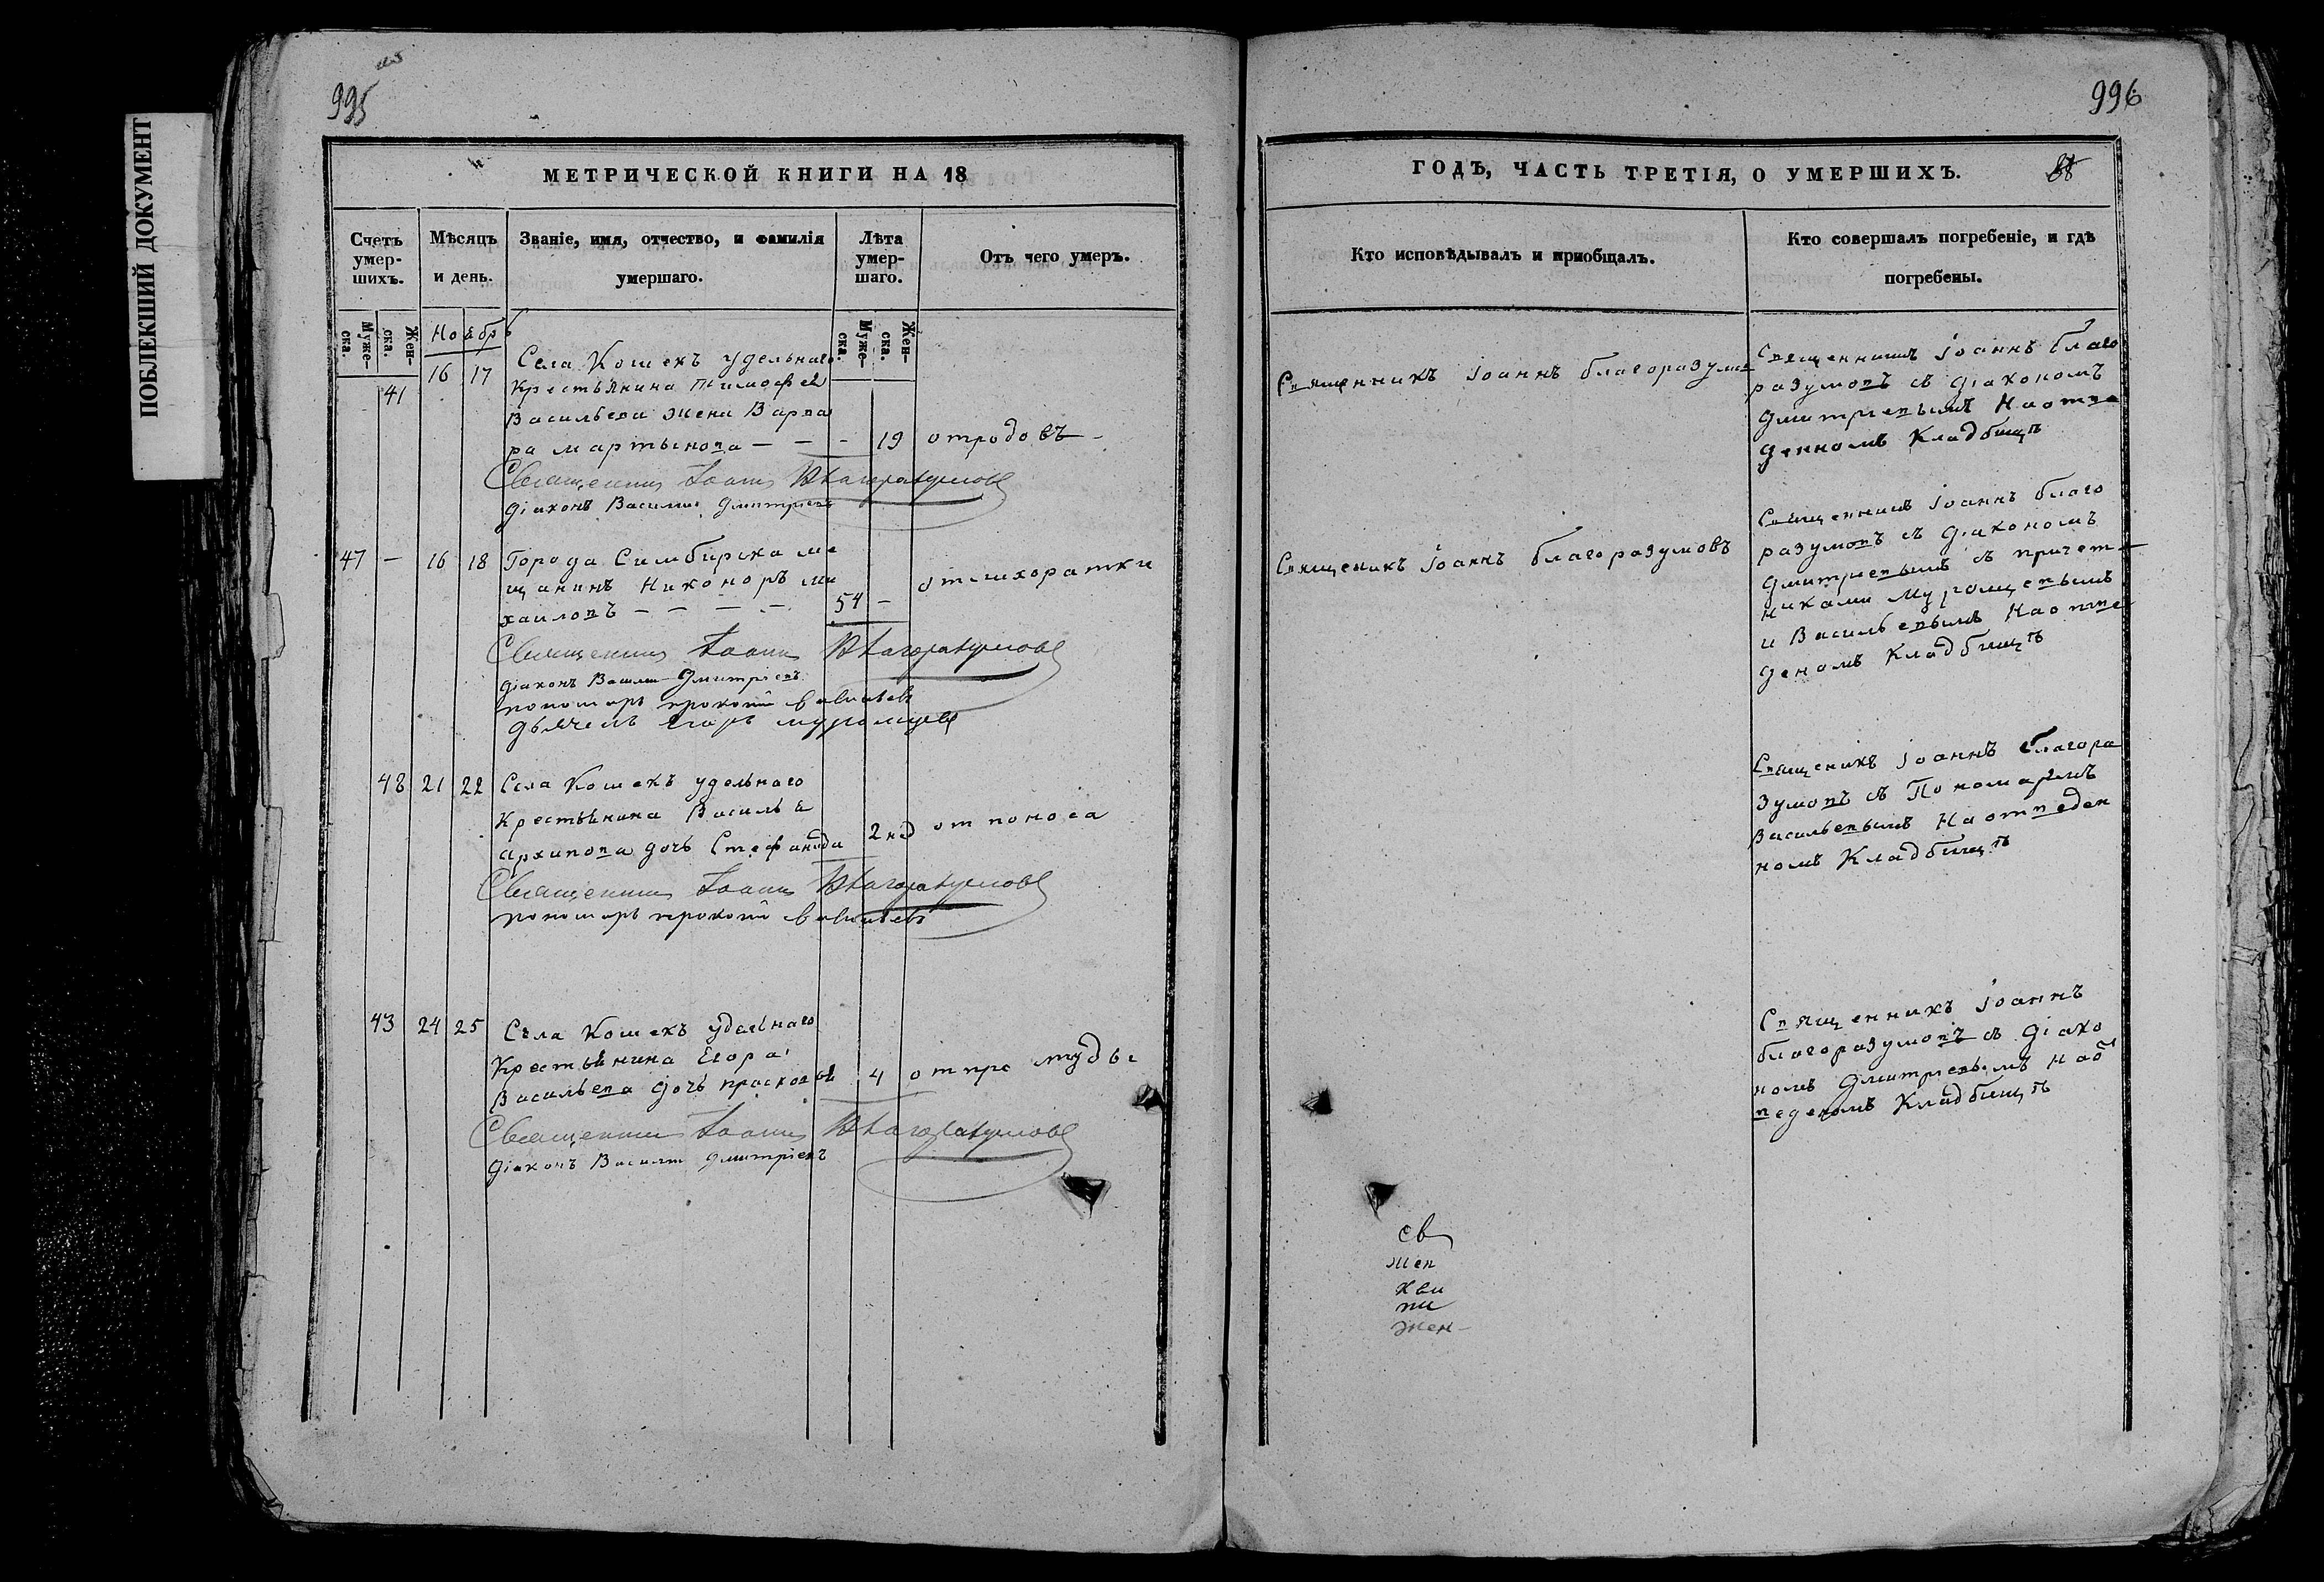 995
996
ПОБЛЕКШИЙ ДОКУМЕНТ
МЕТРИЧЕСКОЙ КНИГИ НА 18
Счетъ умер-шихъ.
Мѣсяцъ и день.
Званіе, имя, отчество, и фамилія умершаго.
Лѣта умер-шаго.
Отъ чего умеръ.
Муже-ска.
Жен-ска.
Муже-ска.
Жен-ска.
Ноябрь
41
16 17
Села Кошекъ удельнаго
Крестьянина Тимофея
Васильева женаВарва
ра мартынова — — — 19 отродовъ
Священникъ Іоаннъ Благоразумовъ
діаконъ Василий Дмитріевъ
47 — 16 18 Города Симбирска ме
щанинъ Никоноръ ми
хаиловъ — — — — 54 — отлихоратки
Священникъ Іоаннъ Благоразумовъ
діаконъ Василий Дмитріевъ
пономарь прокопій Васильевъ
дьячекъ Егоръ муромцевъ
48 21 22 Села Кошекъ удельнаго
Крестьянина Василья
архипова дочь Стефанида 2 нед от поноса
Священникъ Іоаннъ Благоразумовъ
пономарь прокопій Васильевъ
43 24 25 Села Кошекъ удельнаго
Крестьянина Егора
Васильева дочь прасковья 4 отпростуды
Священникъ Іоаннъ Благоразумовъ
діаконъ Василий Дмитріевъ
ГОДЪ, ЧАСТЬ ТРЕТІЯ, О УМЕРШИХЪ.
Кто исповѣдывалъ и пріобщалъ.
Кто совершалъ погребеніе, и гдѣ погребены.
Священникъ Іоаннъ благоразумов
Священникъ Іоаннъ благо
разумовъ съ діакономъ
Дмитріевымъ Наотве
денномъ Кладбищѣ
Священикъ Іоаннъ благоразумовъ
Священникъ Іоаннъ благо
разумовъ съ діакономъ
Дмитріевымъ съ причет
никами Муромцевымъ
и Васильевымъ Наотве
деномъ Кладбищѣ
Священикъ Іоаннъ благора
зумовъ съ Пономаремъ
Васильевымъ Наотведен
номъ Кладбищѣ
Священникъ Іоаннъ
благоразумовъ съ діако
номъ Дмитріевымъ Наот
веденомъ Кладбищѣ
св
жен
жен